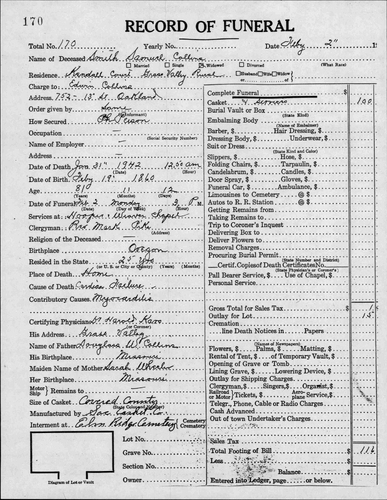 170
RECORD OF FUNERAL
Total No. 170 Yearly No. Date Feby 2"
Name of Deceased Smith Samuel Collins
Married Single Widowed Divorced (What Race)
Residence Grass Valley Rural Husband Wife Widow
Charge to Edwin Collins
Address 752- 15 St. Oakland
Order given by Same
(Informant)
How Secured
Occupation —
(Social Security Number)
Name of Employer —
Address
Date of Death Jan 31st 1942 12:50 am
Date of Birth Feby 19" 1860
Age 81 11 12
Date of Funeral Feb 2 Monday 3 P.M.
Services at Hooper & Weaver Chapel
Clergyman Rev. Mark
Religion of the Deceased —
Birthplace Oregon
Resided in the State 25 yrs
(or U.S. or City or County) (Years) (Months)
Place of Death Home
Cause of Death Cardiac Failure
Contributory Causes Myocarditis
Certifying Physician Dr Harold Karo
(or Coroner)
His Address Grass Valley
Name of Father Douglass W. Collins
His Birthplace Missouri
Maiden Name of Mother Sarah Whaler
Her Birthplace Missouri
Motor Ship Remains to
Size of Casket Covered County
(State Color and Number)
Manufactured by Sac. Casket Co.
Interment at Elm Ridge Cemetery Cemetery Crematory
Lot No.
Grave No.
Section No.
Block No.
Owner
Diagram of Lot or Vault
Complete Funeral
Casket & Services 100
Burial Vault or Box
Embalming Body
(Name of Embalmer)
Barber, $ Hair Dressing, $
Dressing Body, $ Underwear, $
Suit or Dress
(State Kind and Color)
Slippers, $ Hose, $
Folding Chairs, $ Tarpaulin, $
Candelabrum, $ Candles, $
Door Spray, $ Gloves, $
Funeral Car, $ Ambulance, $
Limousines to Cemetery @ $
Autos to R. R. Station @ $
Getting Remains from
Taking Remains to
Trip to Coroner's Inquest
Delivering Box to
Deliver Flowers to
Removal Charges
Procuring Burial Permit
(State Number and District)
Certif. Copies of Death Certificates No.
(State Physician's or Coroner's)
Pall Bearer Service, $ Use of Chapel, $
Personal Service
Gross Total for Sales Tax
Outlay for Lot 15
Cremation
line Death Notices in Papers
(Names of Newspapers)
Flowers, $ Palms, $ Matting, $
Rental of Tent, $ of Temporary Vault, $
Opening of Grave or Tomb
Lining Grave, $ Lowering Device, $
Outlay for Shipping Charges
Clergyman, $ Singers, $ Organist, $
Railroad or Motor Tickets, $ plane Service, $
Telegr., Phone, Cable or Radio Charges
Cash Advanced
Out of town Undertaker's Charges
Sales Tax
Total Footing of Bill 116
Less
Balance
Entered into Ledger, page or below.